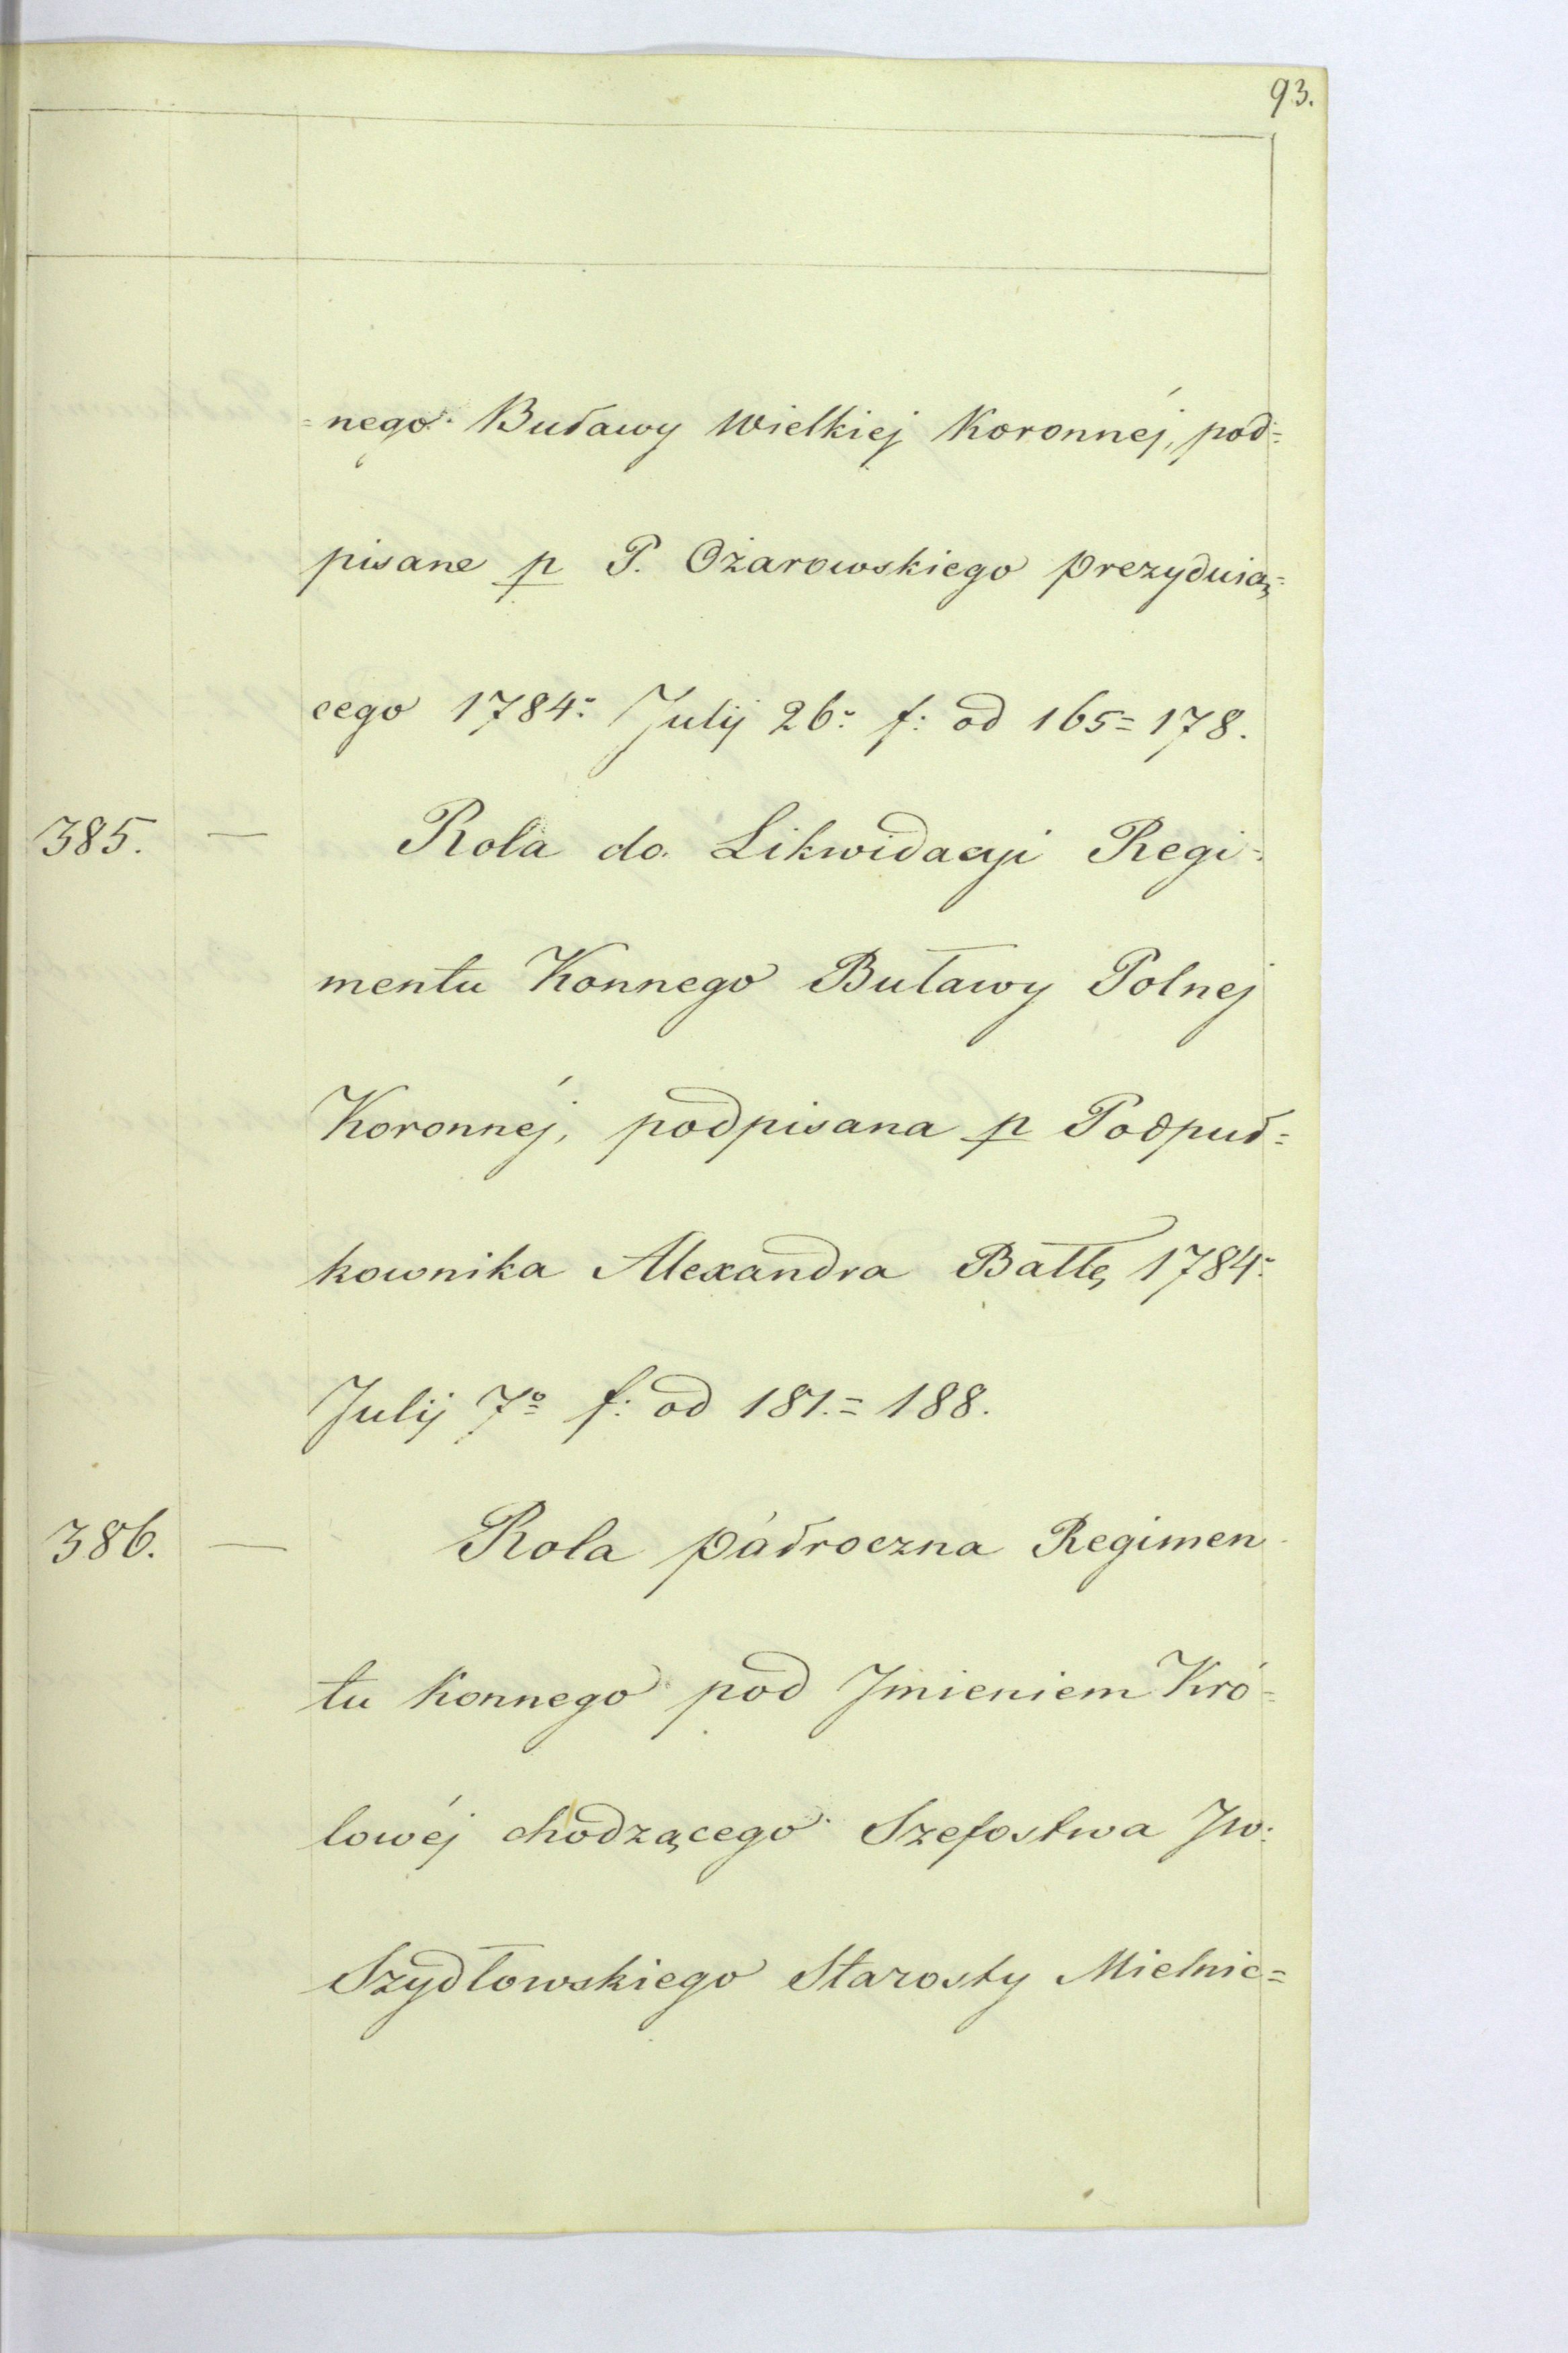 93.
=nego Buławy Wielkiej Koronnéj, pod=
pisane p P. Ożarowskiego Prezyduią=
cego 1784: Julij 26: f: od 165=178.
385. — Rola do Likwidacyi Regi=
mentu Konnego Buławy Polnej
Koronnéj, podpisana p Podpuł=
kownika Alexandra Batlę, 1784:
Julij 7º f: od 181.=188.
386. — Rola páłroczna Regimen
tu Konnego pod Jmieniem Kró=
lowéj chodzącego Szefostwa Jw:
Szydłowskiego Starosty Mielnic=